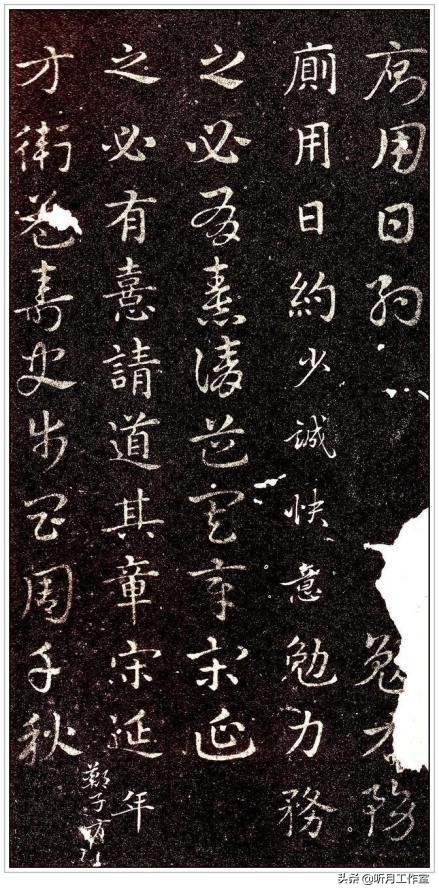 廁用日約勉力務
廁用日約少誠快意勉力務
之必有憙請道其章宋延
之必有憙請道其章宋延年
方衛益壽史步昌周千秋
鄭子
头条 @听月工作室